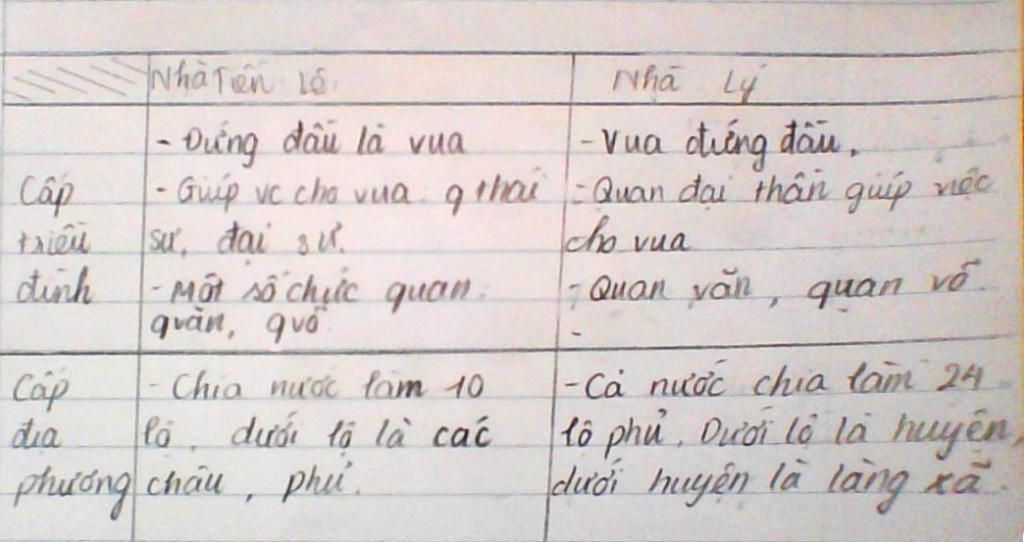 Nhà Tiền Lê. Nhà Lý
- Đứng đầu là vua - Vua đứng đầu.
Cấp - Giúp vc cho vua. q thái - Quan đại thần giúp việc
triều sư, đại sư. cho vua
đình - Một số chức quan. - Quan văn, quan võ.
qvăn, qvõ -
Cấp - Chia nước làm 10 - Cả nước chia làm 24
địa lộ, dưới lộ là các lộ phủ. Dưới lộ là huyện,
phương châu, phủ. dưới huyện là làng xã.